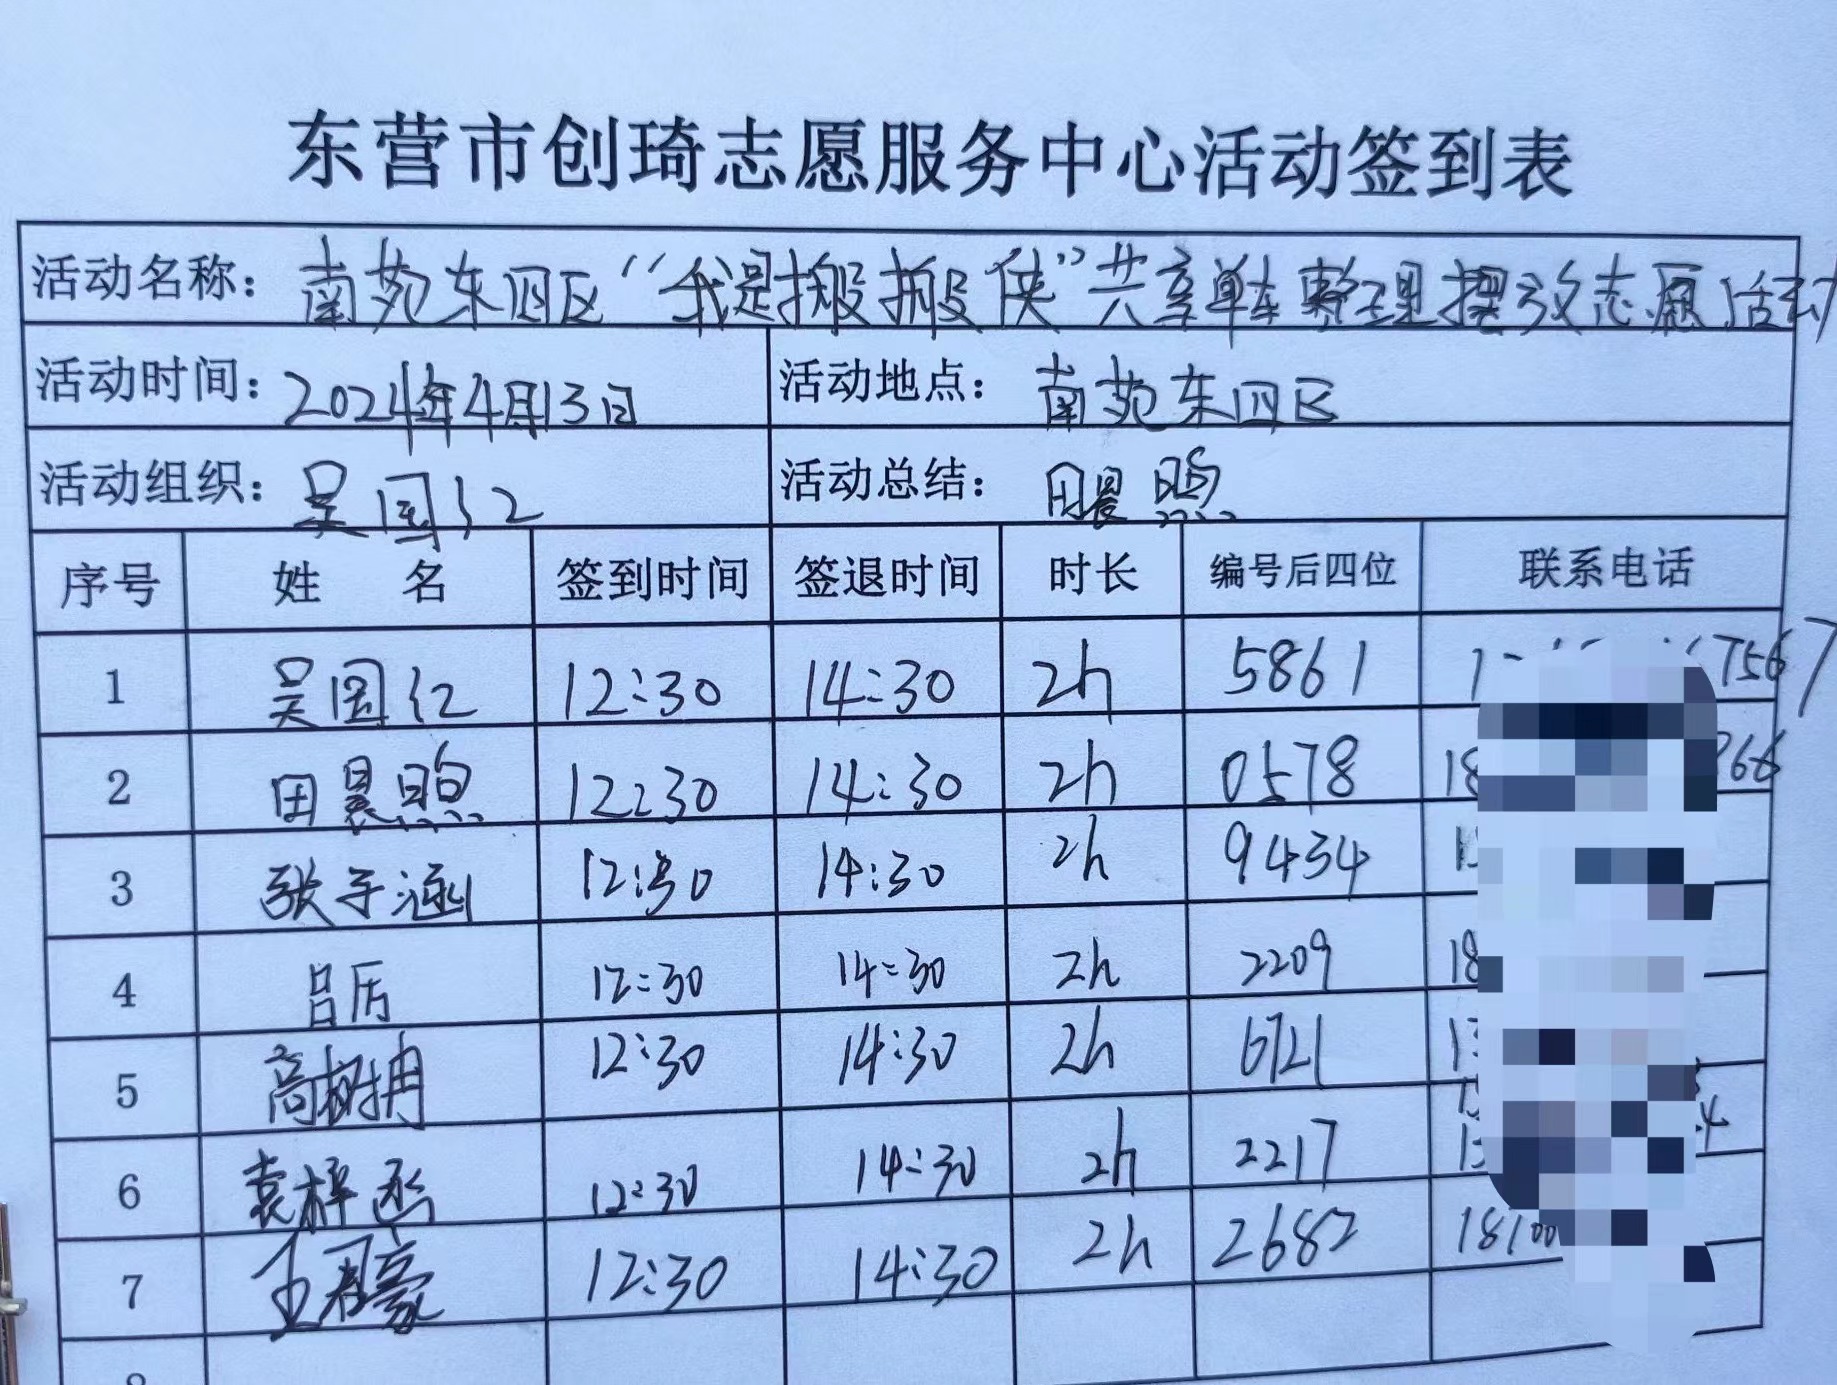 东营市创琦志愿服务中心活动签到表
活动名称：南苑东四区“我是搬搬侠”共享单车整理摆放志愿活动
活动时间：2024年4月13日 活动地点：南苑东四区
活动组织：吴国红 活动总结：田晨煦
序号 姓 名 签到时间 签退时间 时长 编号后四位 联系电话
1 吴国红 12:30 14:30 2h 5861 7567
2 田晨煦 12:30 14:30 2h 0578 18 866
3 张子涵 12:30 14:30 2h 9434
4 吕厉 12:30 14:30 2h 2209 18
5 高树冉 12:30 14:30 2h 6721 13
6 袁梓函 12:30 14:30 2h 2217 13
7 王 豪 12:30 14:30 2h 2682 18100